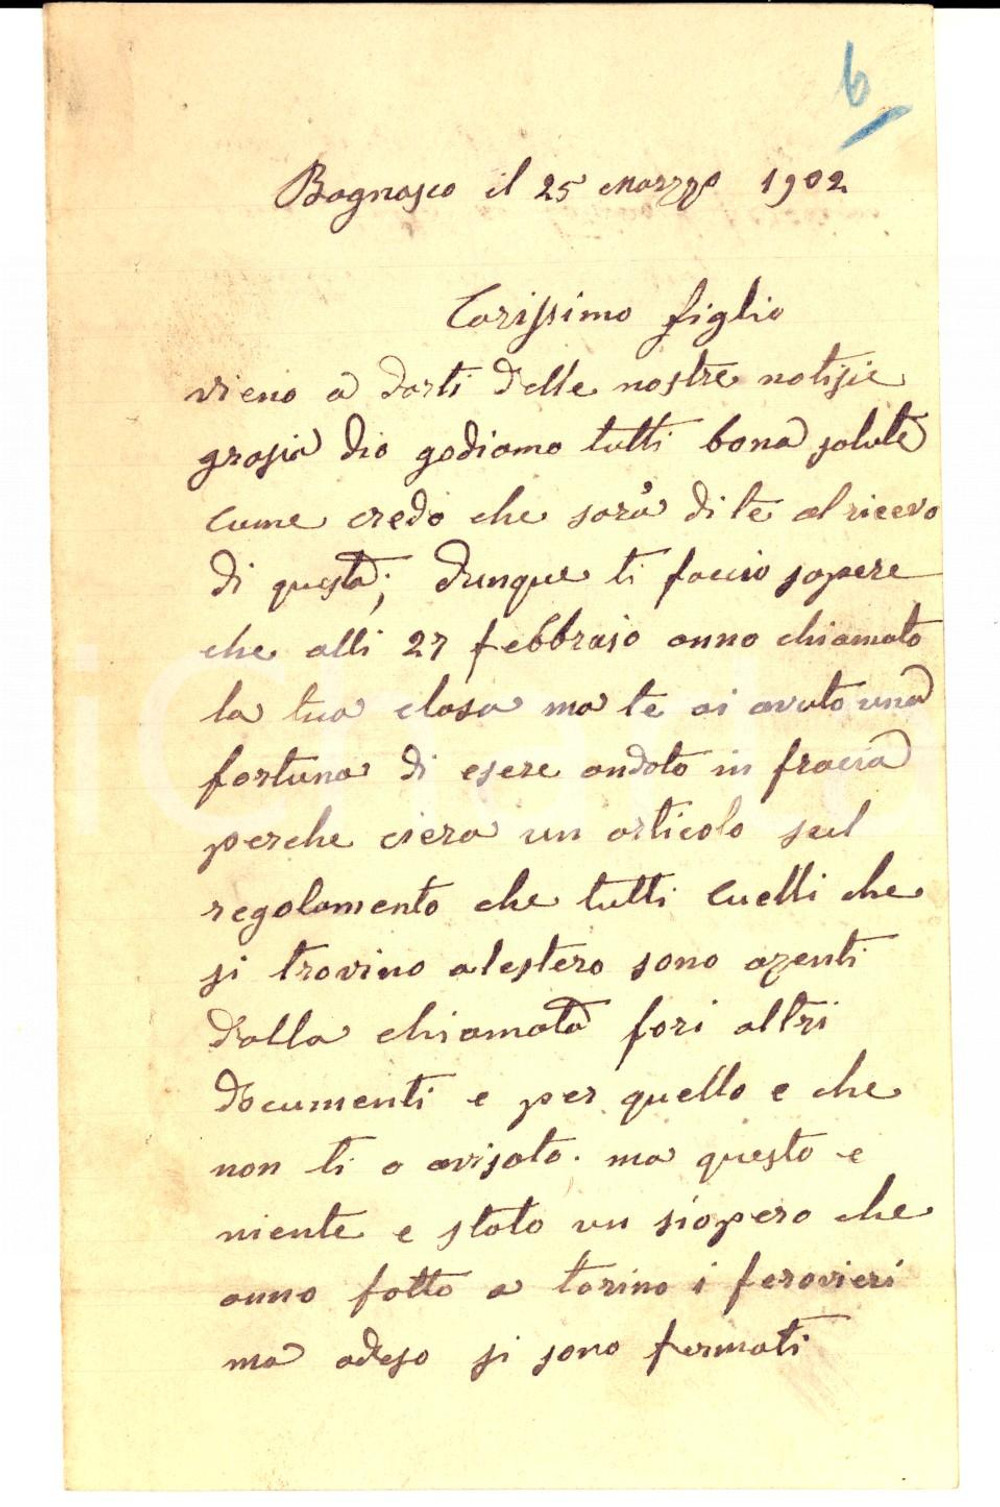 6
Bagnasco il 25 Marzzo 1902
Carissimo figlio
vieno a darti delle nostre notisie
grasia dio godiamo tutti bona salute
cume credo che sara di te al ricevo
di questa; dunque ti faccio sapere
che alli 27 febbraio anno chiamato
la tua clasa ma te ai avuto una
fortuna di esere andato in fracia
perche ciera un articolo sul
regolamento che tutti cuelli che
si trovino alestero sono azenti
dalla chiamata fori altri
documenti e per quello e che
non ti o avisato. ma questo e
niente e stato un siopero che
anno fatto a torino i ferovieri
ma adeso si sono fermati